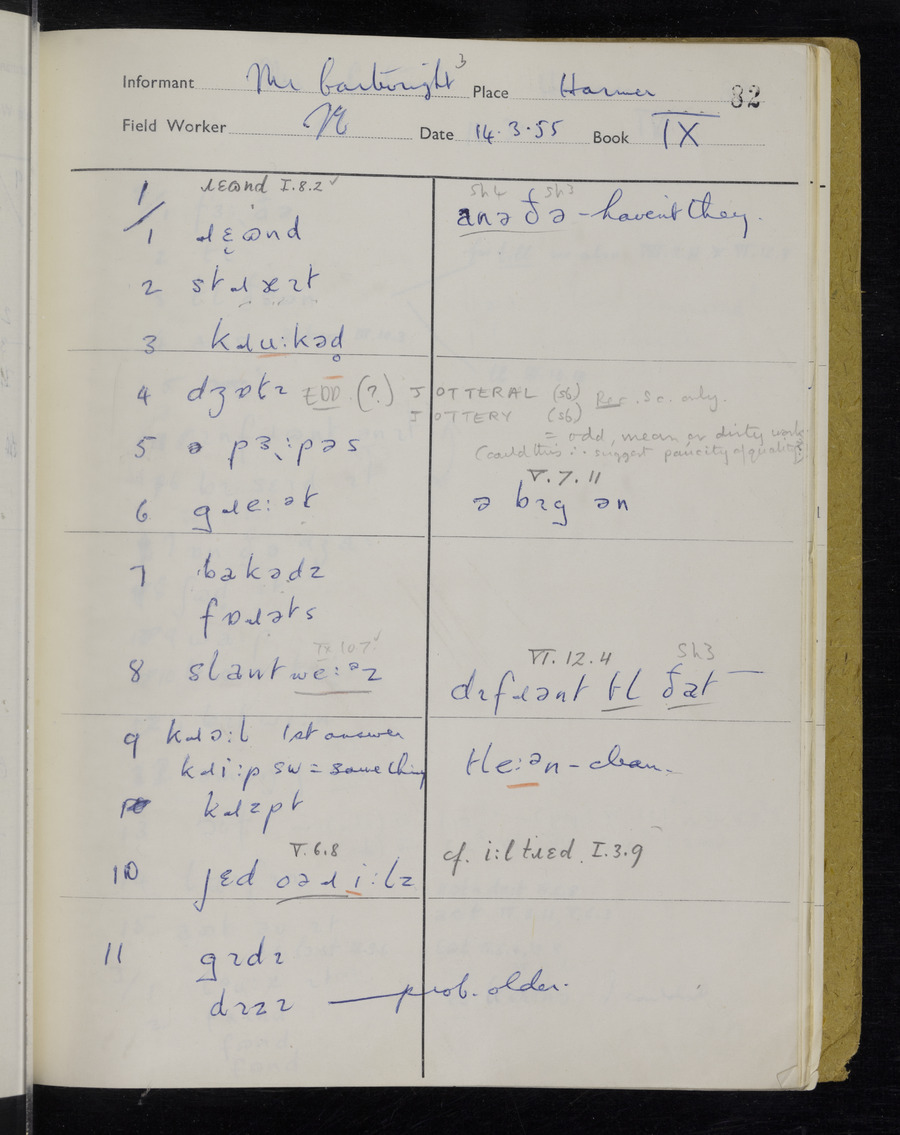 Informant Mr Cartwright 3 Place Harmer 82
Field Worker Date 14.3.55 Book IX
1/ ɹɛɷnd I.8.2 ✓
1 ɹɛɷnd
sh4 sh3
anə ðə - haven't they.
2 stɹæɪt
3 kɹu:kəd̥
4 dʒɒtɪ EDD (?) JOTTERAL (sb) Rec. Sc. only.
JOTTERY (sb)
= odd, mean or dirty work
(could this ∴ suggest paucity of quality?
5 ə pɜ:pəs
V.7.11
6 gɹe:ət
ə bɪg ən
7 bakədz
fɒɹəts
IX 10 7 ✓
8 slantwe:əz
VI.12.4 Sh3
dɪfɹənt tl ðat —
9 kɹɔ:l 1st answer
kɹi:p sw = something
kɹɛpt
tle:ən - clean.
V.6.8
10 jɛd oəɹ i:lz
cf. i:l tɹɛd I.3.9
11 gɪdɪ
dɪzɪ — prob. older.